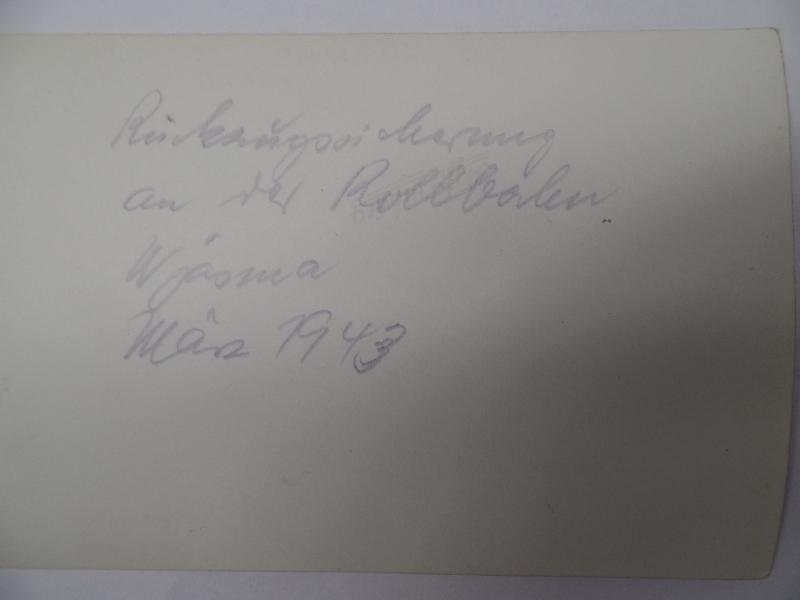 Rückzugssicherung
an der Rollbahn
Wjasma
März 1943